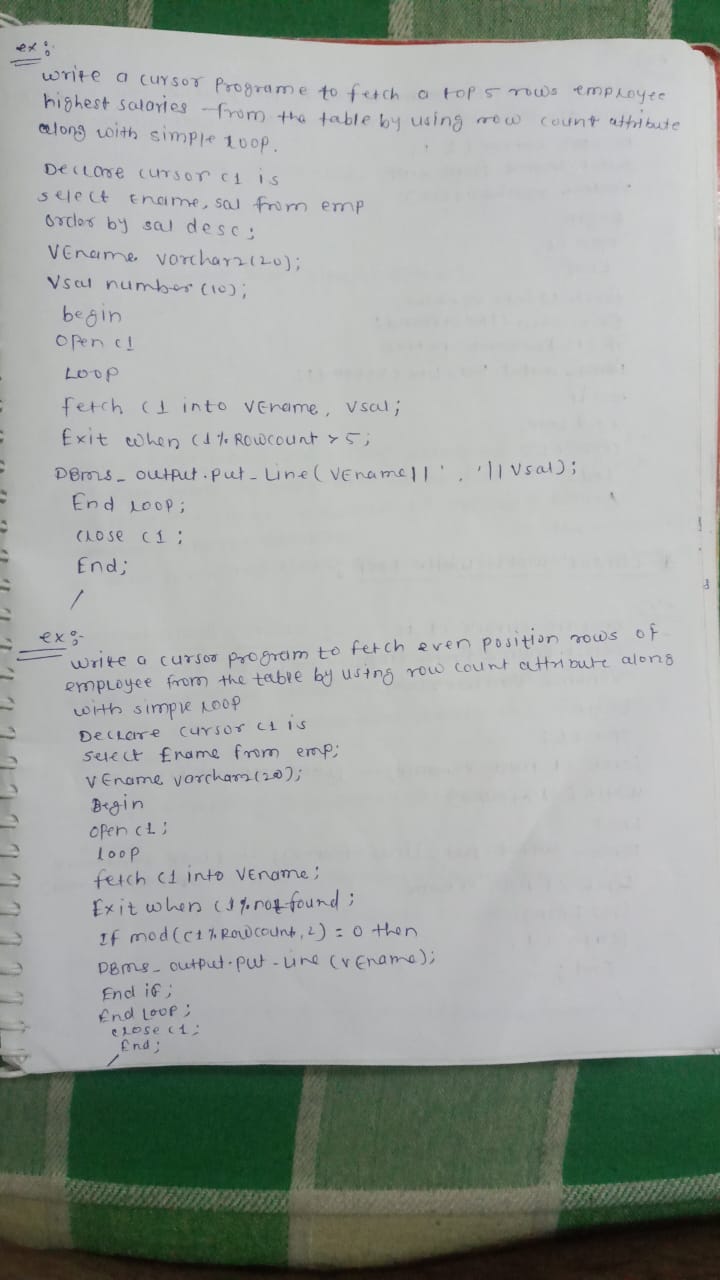 ex:
write a cursor programe to fetch a top 5 rows employee
highest salaries from the table by using row count attribute
along with simple loop.
Declare cursor c1 is
select Ename, sal from emp
order by sal desc;
VEname varchar2(20);
Vsal number(10);
begin
open c1
Loop
fetch c1 into VEname, Vsal;
Exit when c1%Rowcount >5;
DBms_output.put_Line(VEname||' , '||Vsal);
End Loop;
close c1;
End;
/
ex:-
write a cursor program to fetch even position rows of
employee from the table by using row count attribute along
with simple loop
Declare cursor c1 is
select Ename from emp;
VEname varchar2(20);
Begin
open c1;
loop
fetch c1 into VEname;
Exit when c1%notfound;
If mod(c1%Rowcount,2) = 0 then
DBms_output.put-Line (vEname);
End if;
End Loop;
close c1;
End;
/